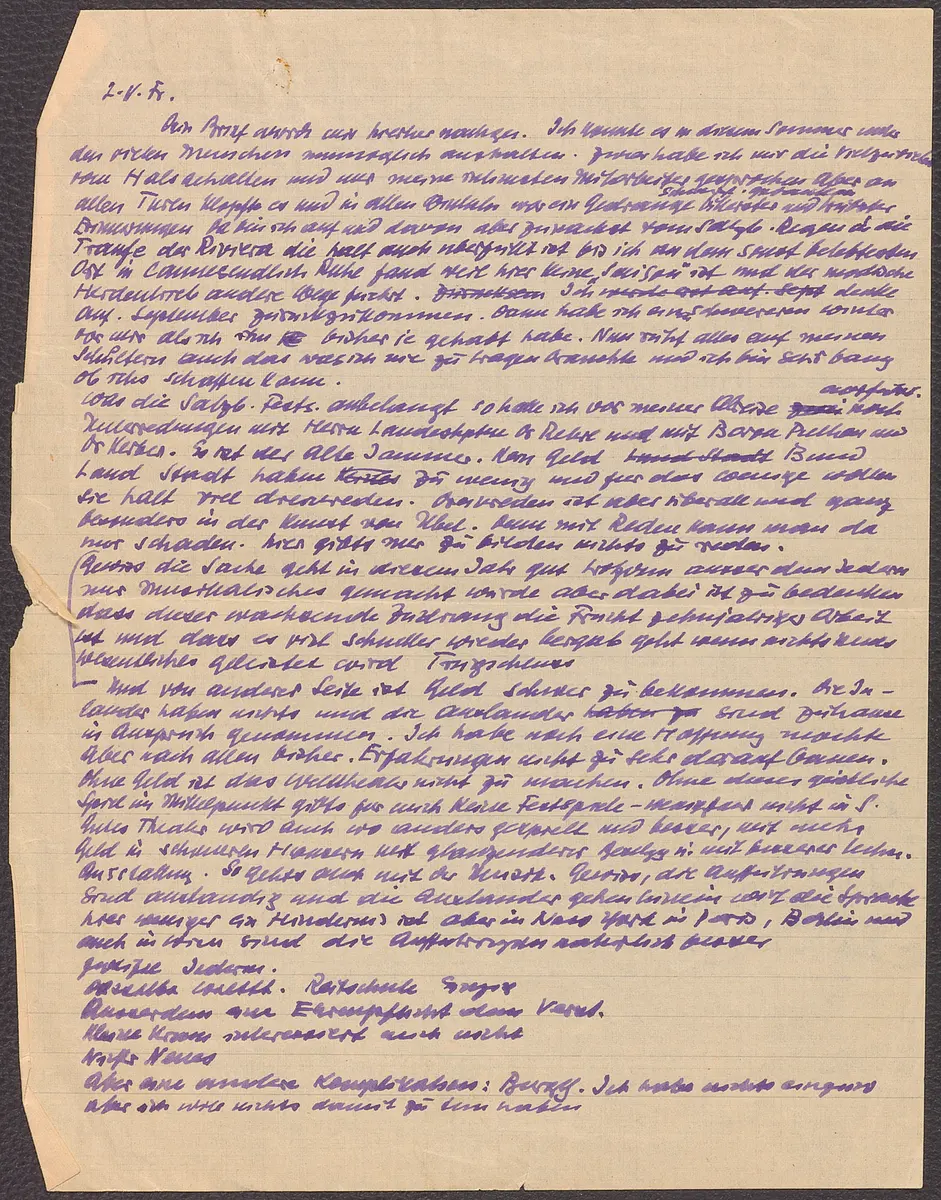 2.V. Fr.
Dein Brief wurde mir hierher nachges. Ich konnte es in diesem Sommer unter
den vielen Menschen unmöglich aushalten. Zwar habe ich mir die
vom Hals gehalten und nur meine intimsten Mitarbeiter gesprochen Aber an
allen Türen klopfte es und in allen war ein Gedränge und
Erinnerungen Da bin ich auf und davon aber zunächst vom Salzb. Regen in die
Traufe der Riviera die halt auch überfüllt ist bis ich an dem sonst belebtesten
Ort in Cannes endlich Ruhe fand weil hier keine "Saison" ist und der modische
Herdentrieb andere Wege sucht. Ich denke
Anf. September zurückzukommen. Dann habe ich einen schwereren Winter
vor mir als ich ihn bisher je gehabt habe. Nun ruht alles auf meinen
Schultern auch das was ich nie zu tragen brauchte und ich bin sehr bang
ob ichs schaffen kann.
Was die Salzb. Fests. anbelangt so hatte ich vor meiner Abreise noch ausführl.
Unterredungen mit Herrn Landeshptm Dr Rehrl und mit Baron Puthon und
Dr Kerber. Es ist der alte Jammer. Kein Geld Bund
Land Stadt haben zu wenig und für das wenige wollen
sie halt viel dreinreden. Dreinreden ist aber überall und ganz
besonders in der Kunst von Übel. Denn mit Reden kann man da
nur schaden. Hier gibts nur zu bilden nichts zu reden.
Gewiss die Sache geht in diesem Jahr gut trotzdem ausser dem Jederm
nur Musikalisches gemacht wurde aber dabei ist zu bedenken
dass dieser wachsende die Frucht zehnjähriger Arbeit
ist und dass es viel schneller wieder bergab geht wenn nichts neues
wesentliches geleistet wird Trugschluss
Und von anderer Seite ist Geld schwer zu bekommen. Die In-
länder haben nichts und die Ausländer haben zu sind zuhause
in Anspruch genommen. Ich habe noch eine Hoffnung möchte
aber nach allen bisher. Erfahrungen nicht zu sehr darauf bauen.
Ohne Geld ist das Welttheater nicht zu machen. Ohne dieses geistliche
Spiel im Mittelpunkt gibts für mich keine Festspiele – nicht in S.
Gutes Theater wird auch wo anders gespielt und besser, mit mehr
Geld in schöneren Häusern mit glänzenderer u. mit besserer techn.
Ausstattung. So gehts auch mit der Gewiss, die Aufführungen
sind anständig und die Ausländer gehen hinein weil die Sprache
hier weniger ein Hindernis ist aber in New York in Paris, Berlin und
auch in Wien sind die Aufführungen natürlich besser
Jederm.
Dasselbe Weltth. Reitschule
Ausserdem eine Ehrenpflicht dem Verst.
Kleine Kram interessiert mich nicht
Nichts Neues
Aber eine andere Komplikation: Ich habe nichts
aber ich will nichts damit zu tun haben